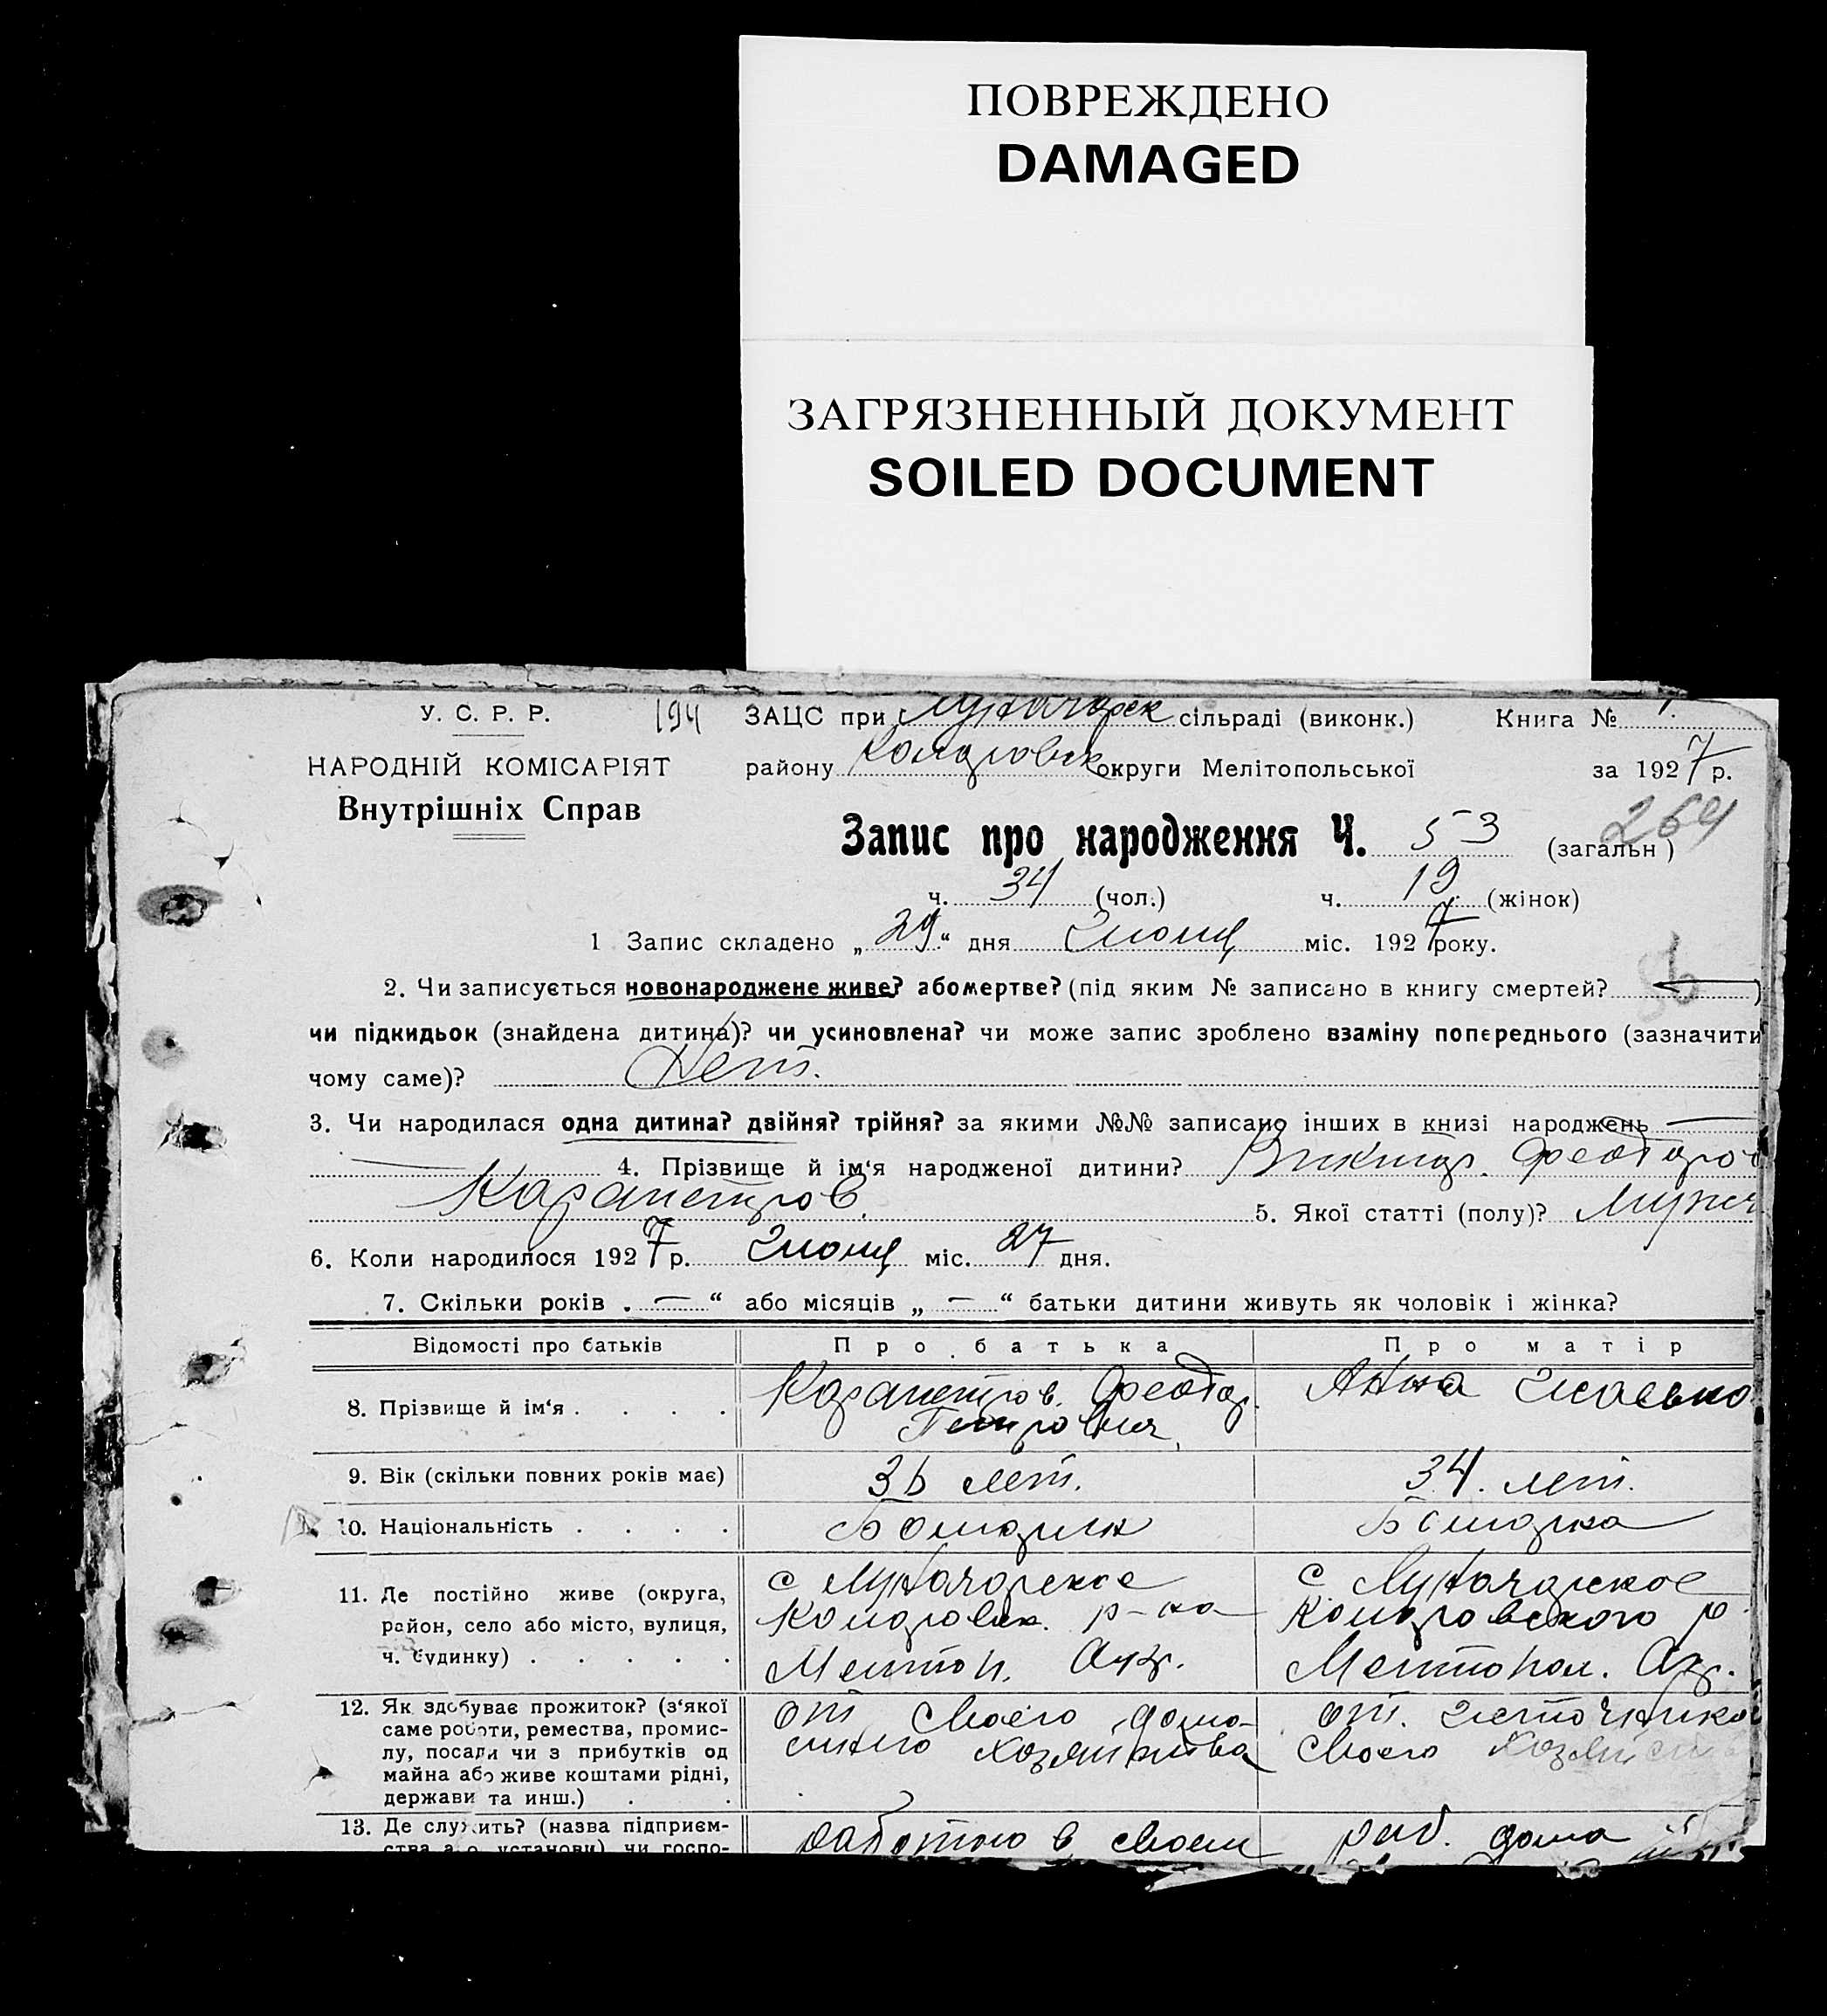 ПОВРЕЖДЕНО
DAMAGED
ЗАГРЯЗНЕННЫЙ ДОКУМЕНТ
SOILED DOCUMENT
У. С. Р. Р. 194 ЗАЦС при Луначарск сільраді (виконк.) Книга №
НАРОДНІЙ КОМІСАРІЯТ району округи Мелітопольської за 1927 р.
Внутрішніх Справ
Запис про народження Ч. 53 (загальн) 264
ч. 34 (чол.) ч. 19 (жінок)
1 Запис складено „29“ дня Июня міс. 1927 року.
2. Чи записується новонароджене живе? або мертве? (під яким № записано в книгу смертей? — )
чи підкидьок (знайдена дитина)? чи усиновлена? чи може запис зроблено взаміну попереднього (зазначити
чому саме)? Нет.
3. Чи народилася одна дитина? двійня? трійня? за якими №№ записано інших в книзі народжень —
— 4. Прізвище й ім‘я народженої дитини? Виктор. Феодоро
Карапетров. 5. Якої статті (полу)? Мужс
6. Коли народилося 1927 р. Июня міс. 27 дня.
7. Скільки років „ — “ або місяців „ — “ батьки дитини живуть як чоловік і жінка?
Відомості про батьків Про батька Про матір
8. Прізвище й ім‘я . . . . Карапетров. Феодор. Анна
Петрович,
9. Вік (скільки повних років має) 36 лет. 34. лет.
10. Національність . . . . Болгарин Болгарка
11. Де постійно живе (округа, с Луначарское с Луначарское
район, село або місто, вулиця, р-на р.
ч. будинку) . . . . . Мелитоп. Окр. Мелитопол. Окр.
12. Як здобуває прожиток? (з‘якої
саме роботи, ремества, промис- от своего дома- от. источника
лу, посади чи з прибутків од шнего хозяйства своего хозяйств
майна або живе коштами рідні,
держави та инш.) . .
13. Де служить? (назва підприєм- работаю в своем раб. дома
ства або установи) чи госпо-